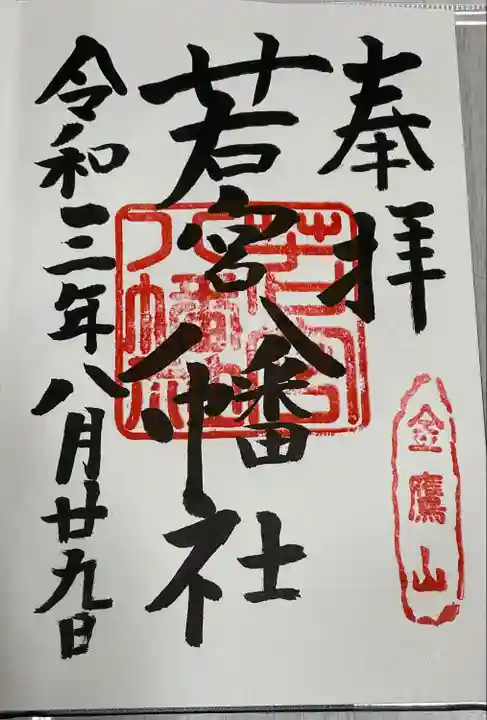 奉拝
金鷹山
若宮八幡社
若宮八幡社
令和三年八月廿九日